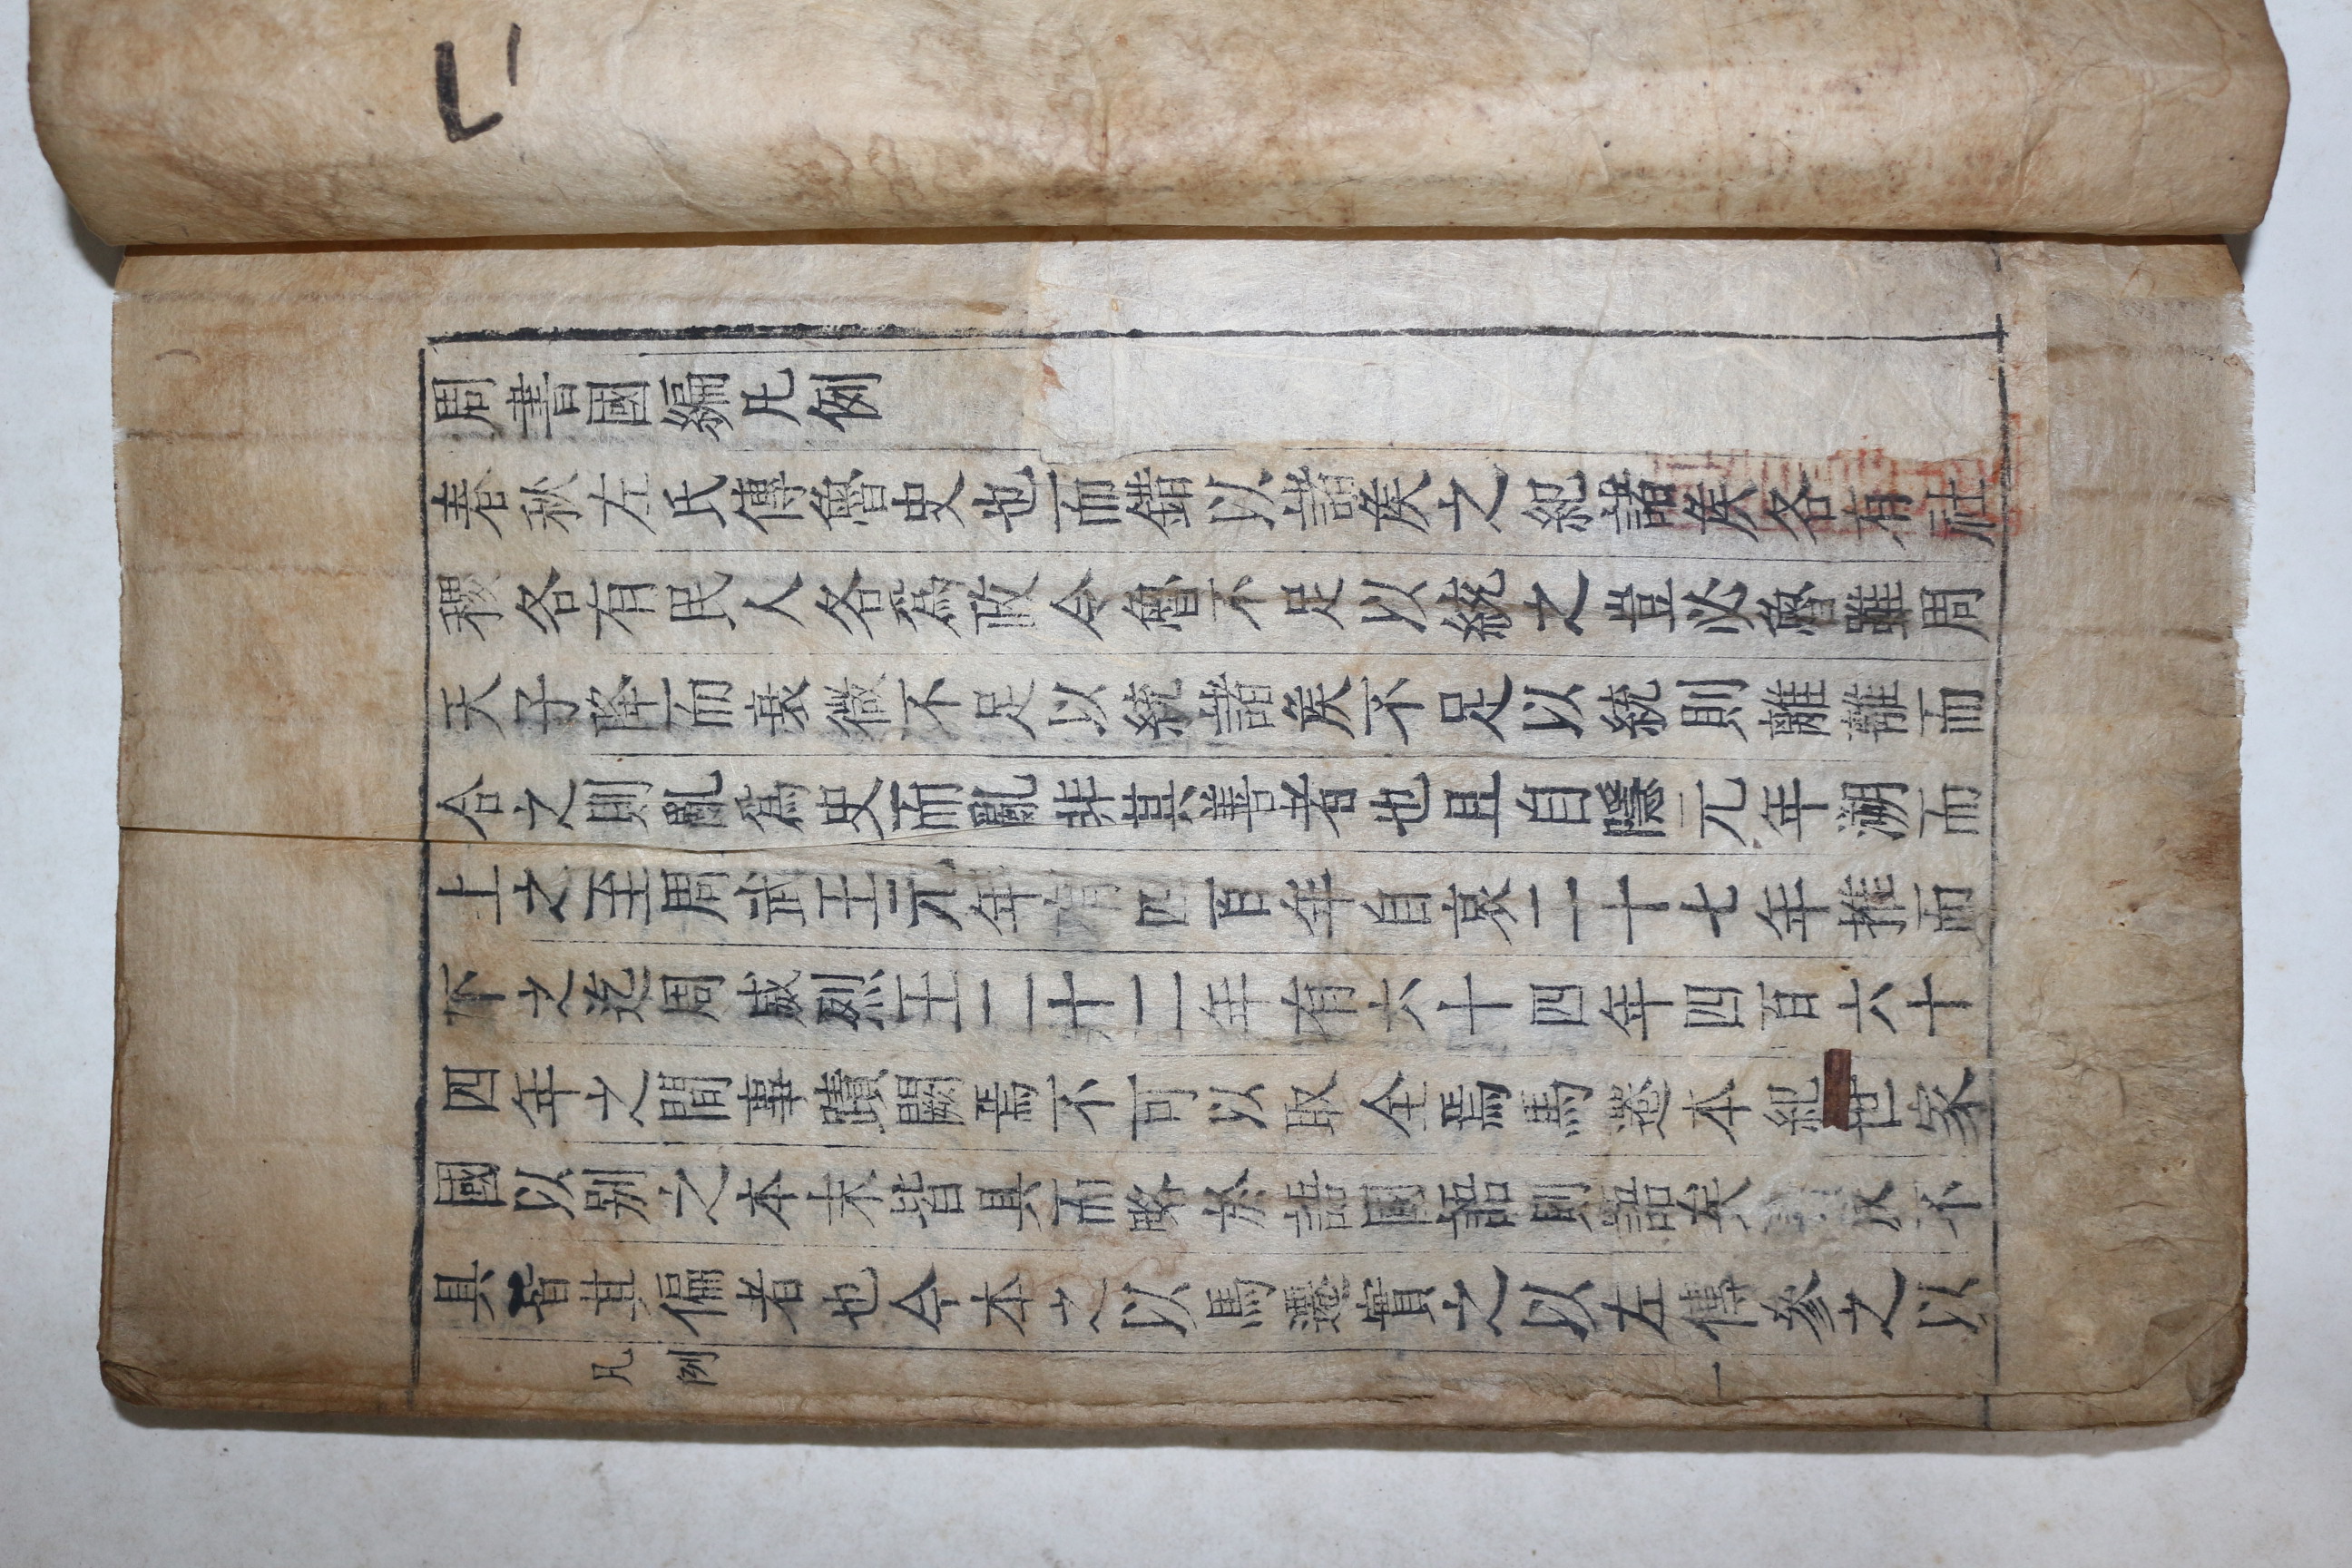 周書國編凡例
春秋左氏傳魯史也而錯以諸矦之紀諸矦各有社
稷各有民人各爲政令魯不足以統之豈必魯雖周
天子降而衰微不足以統諸矦不足以統則離離而
合之則亂爲史而亂非其善者也且自隱元年溯而
上之至周武王元年四百年自哀二十七年推而
下之迄周威烈王二十二年有六十四年四百六十
四年之間事蹟闕焉不可以取全焉馬遷本紀世家
國以別之本末皆具而略於諸國語則語矣不
具皆其偏者也今本之以馬遷實之以左傳參之以
凡例 一